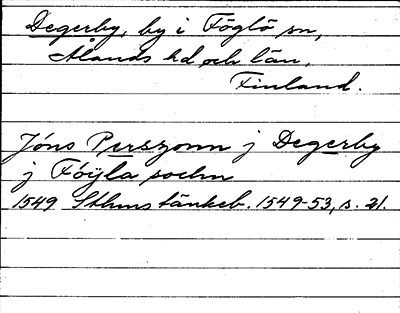 Degerby, by i Föglö sn,
Ålands hd och län,
Finland.
Jóns Perszonn j Degerby
j Föÿla sochn
1549 Sthms tänkeb. 1549-53, s. 21.